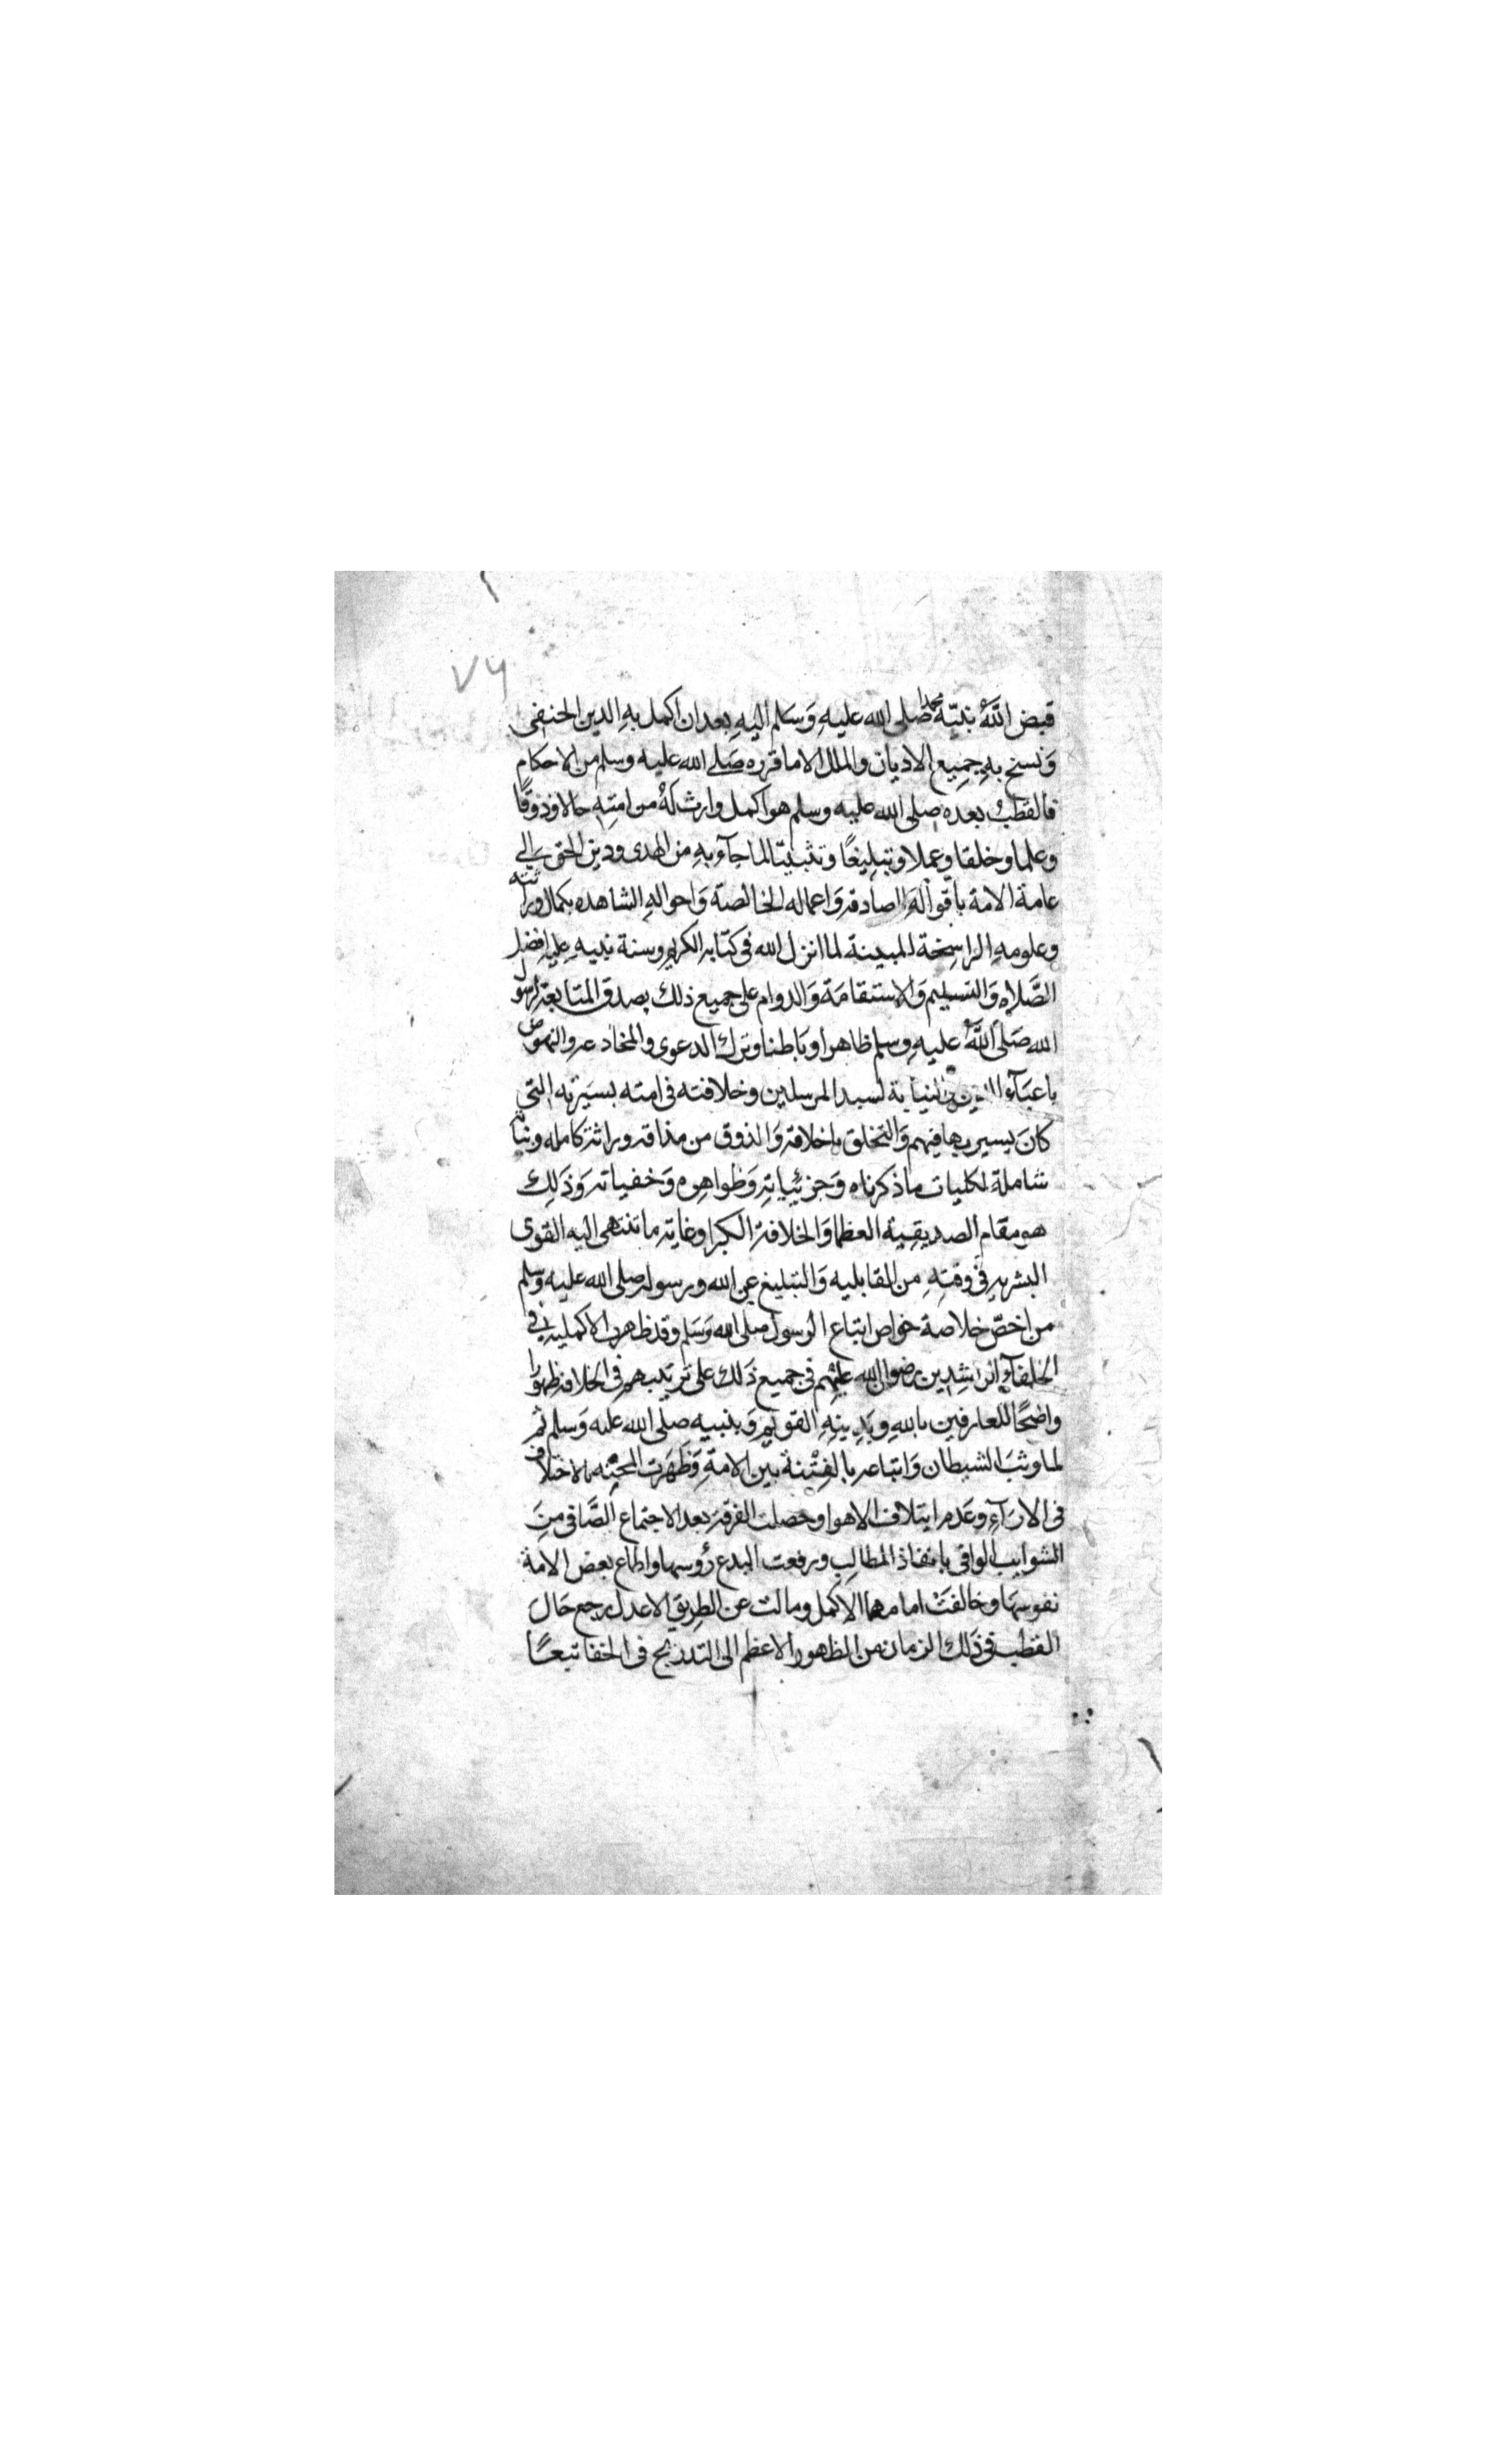 ٧٦
قبض اللَّهُ نبيّه محمدا صلى الله عليهِ وَسَلم اليهِ بعد ان اكمل بهِ الدين الحنفى
وَنسخ بهِ جمِيع الاديان والملل الاما قرره صَلى الله عليه وسلم من الاحكام
فالقطبُ بعده صلى الله عليه وسلم هو اكمل وارث لهُ من امتِهِ حالا وذوقًا
وعلما وخلقا وعملا وتبليغًا وتثبيتا لما جآء بهِ من الهدى ودين الحق الى
عامة الامة باقوالهِ الصادقه وَاعماله الخالصة وَاحوالهِ الشاهده بكمال وراثته
وعلومهِ الراسِخة المبينة لما انزل الله فى كتابه الكريم وسنة نبيهِ عليه افضل
الصَّلاه وَالتسليم وَالاستقامَة وَالدوام على جميع ذلك بصدق المتابعة لرسول
الله صَلى اللَّهُ عليهِ وسلم ظاهرا وبَاطنا وترك الدعوى والمخادعه والنهوض
باعبَآء النيابة لسيد المرسلين وخلافته فى امته بسيَرته التى
كانَ يسير بها فيهم وَالتخلق باخلاقه وَالذوق من مذاقه وراثة كامله ونيابة
شاملة لكليات ما ذكرناه وَجزئياتِهِ وَظواهِره وَخفياته وَذَلِك
هو مقام الصديقية العظما وَالخلافة الكبرا وغاية ما تنتهى اليه القوى
البشريه فى وقتِهِ من القابليه وَالتبليغ عن الله ورسوله صلى الله عليه وسلم
من اخصّ خلاصة خواص اتباع الرسول صلى الله وَسَلم وقد ظهر الاكمليه فى
الخلفآء الراشِدين رضوان الله عليهم فى جميع ذَلك على ترتيبهم فى الخلافه ظهورا
واضحًا للعارفين باللهِ وبدِينِهِ القويم وَبنبيه صلى الله عليه وَسلم ثم
لما وثبَ الشيطان وَاتباعه بالفِتْنة بين الامةِ وَظَهَرت المحنِه بالاختلاف
فى الارَآءِ وعَدم ايتلاف الاهوا وحصلت الفرقة بعد الاجتماع الصَّافى مِنَ
الشوايب الوافى بانفاذ المطالِب ورفعت البدع رُؤسها واطاع بعض الامة
نفوسهَا وخالفَتْ امامهما الاكمل ومالت عن الطرِيق الاعدل رجع حَال
القطب فى ذَلك الزمان من الظهور الاعظم الى التدريج فى الخفا تبعًا